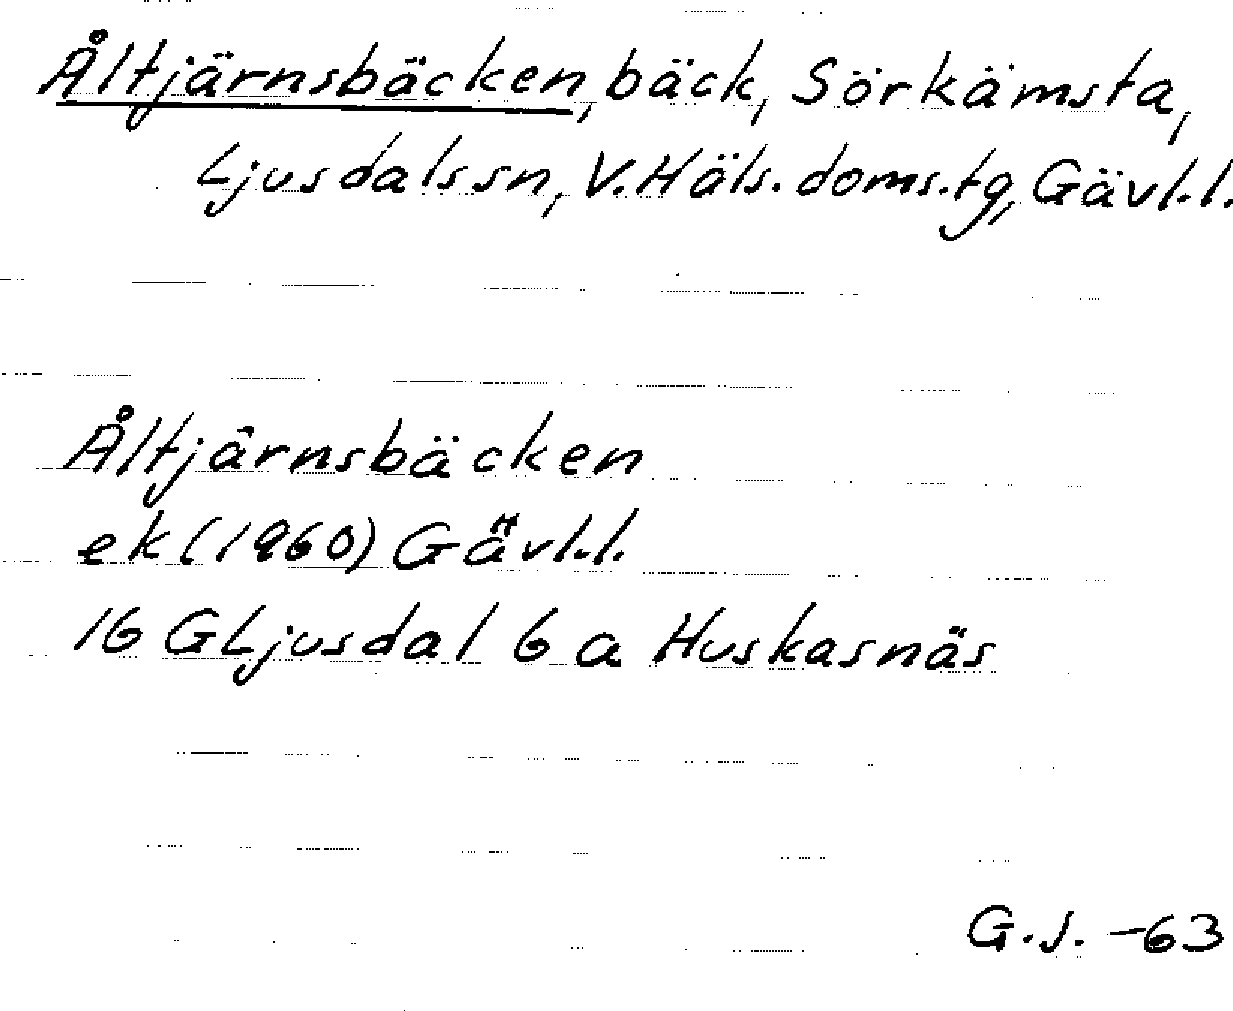 Åltjärnsbäcken, bäck, Sörkämsta,
Ljusdals sn, V. Häls. doms.tg, Gävl.l.
Åltjärnsbäcken
ek (1960) Gävl.l.
16 G Ljusdal 6 a Huskasnäs
G.J. -63